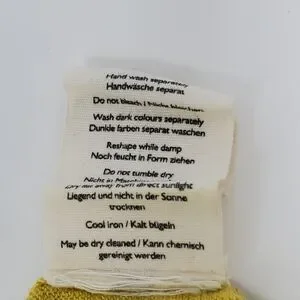 Hand wash separately
Handwäsche separat
Do not bleach /
Wash dark colours separately
Dunkle farben separat waschen
Reshape while damp
Noch feucht in Form ziehen
Do not tumble dry
Nicht in
Dry flat away from direct sunlight
Liegend und nicht in der Sonne
trocknen
Cool iron / Kalt bügeln
May be dry cleaned / Kann chemisch
gereinigt werden